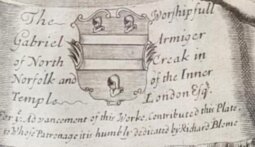 The Worshipfull
Gabriel Armiger
of North Creak in
Norfolk and of the Inner
Temple London Esqr.
For ye Advancement of this Worke, Contributed this Plate.
to Whose Patronage it is humbly dedicated by Richard Blome